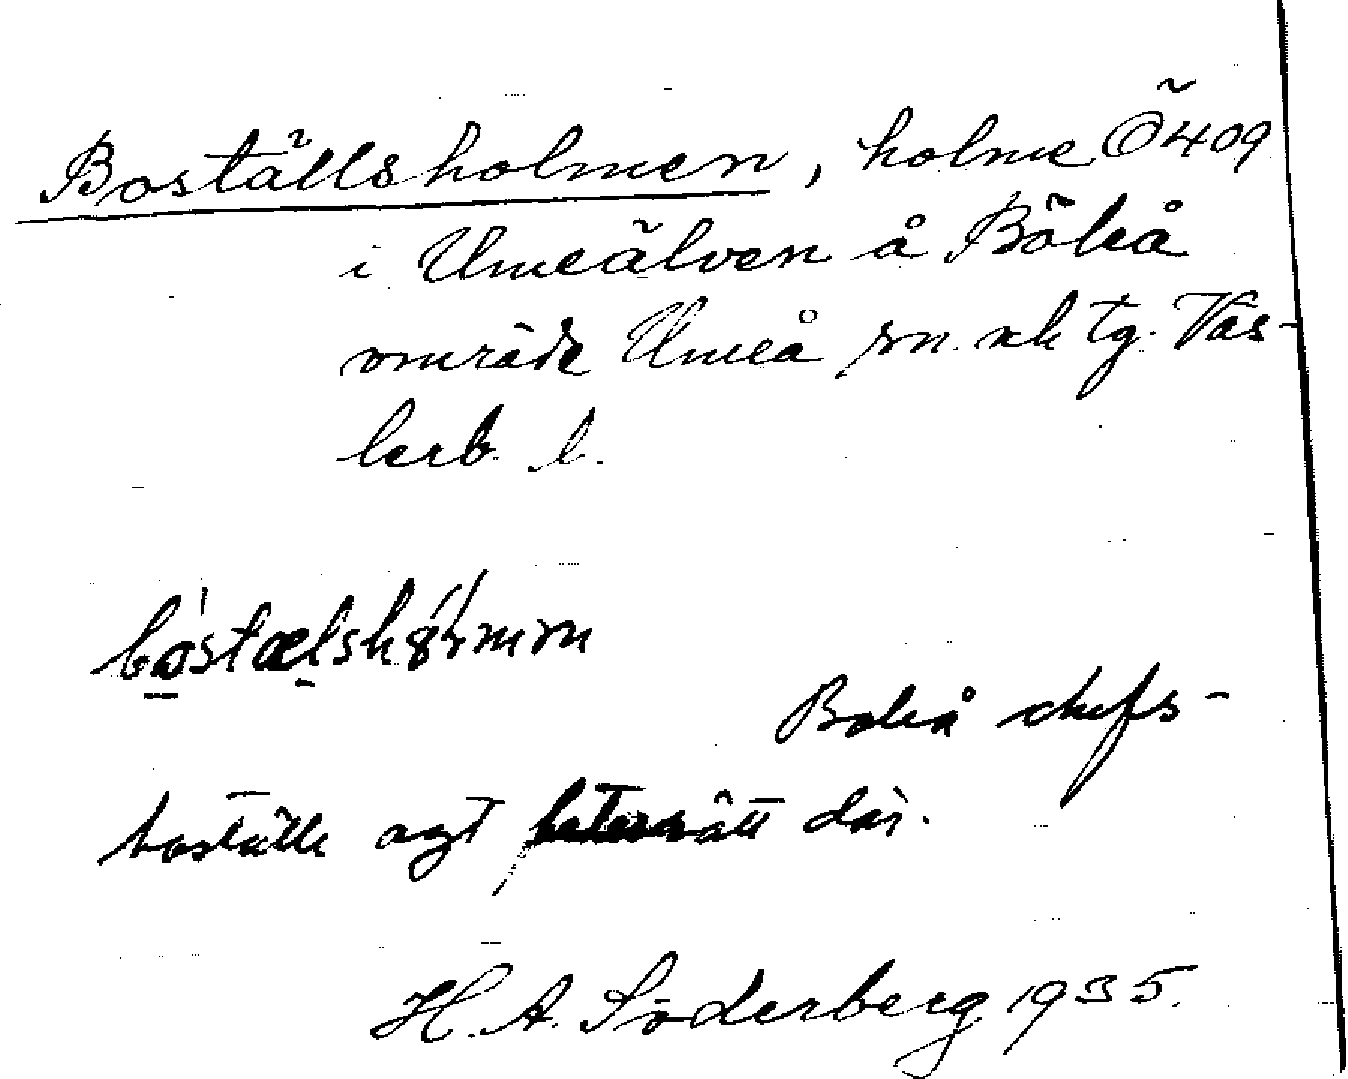 Boställsholmen, holme Ö 409
i Umeälven å Böleå
område Umeå sn. o. tg. Väs-
terb. l.
bostælshɷlmɷn
Boleå chefs-
boställe ägt rätt där.
H. A. Söderberg 1935.